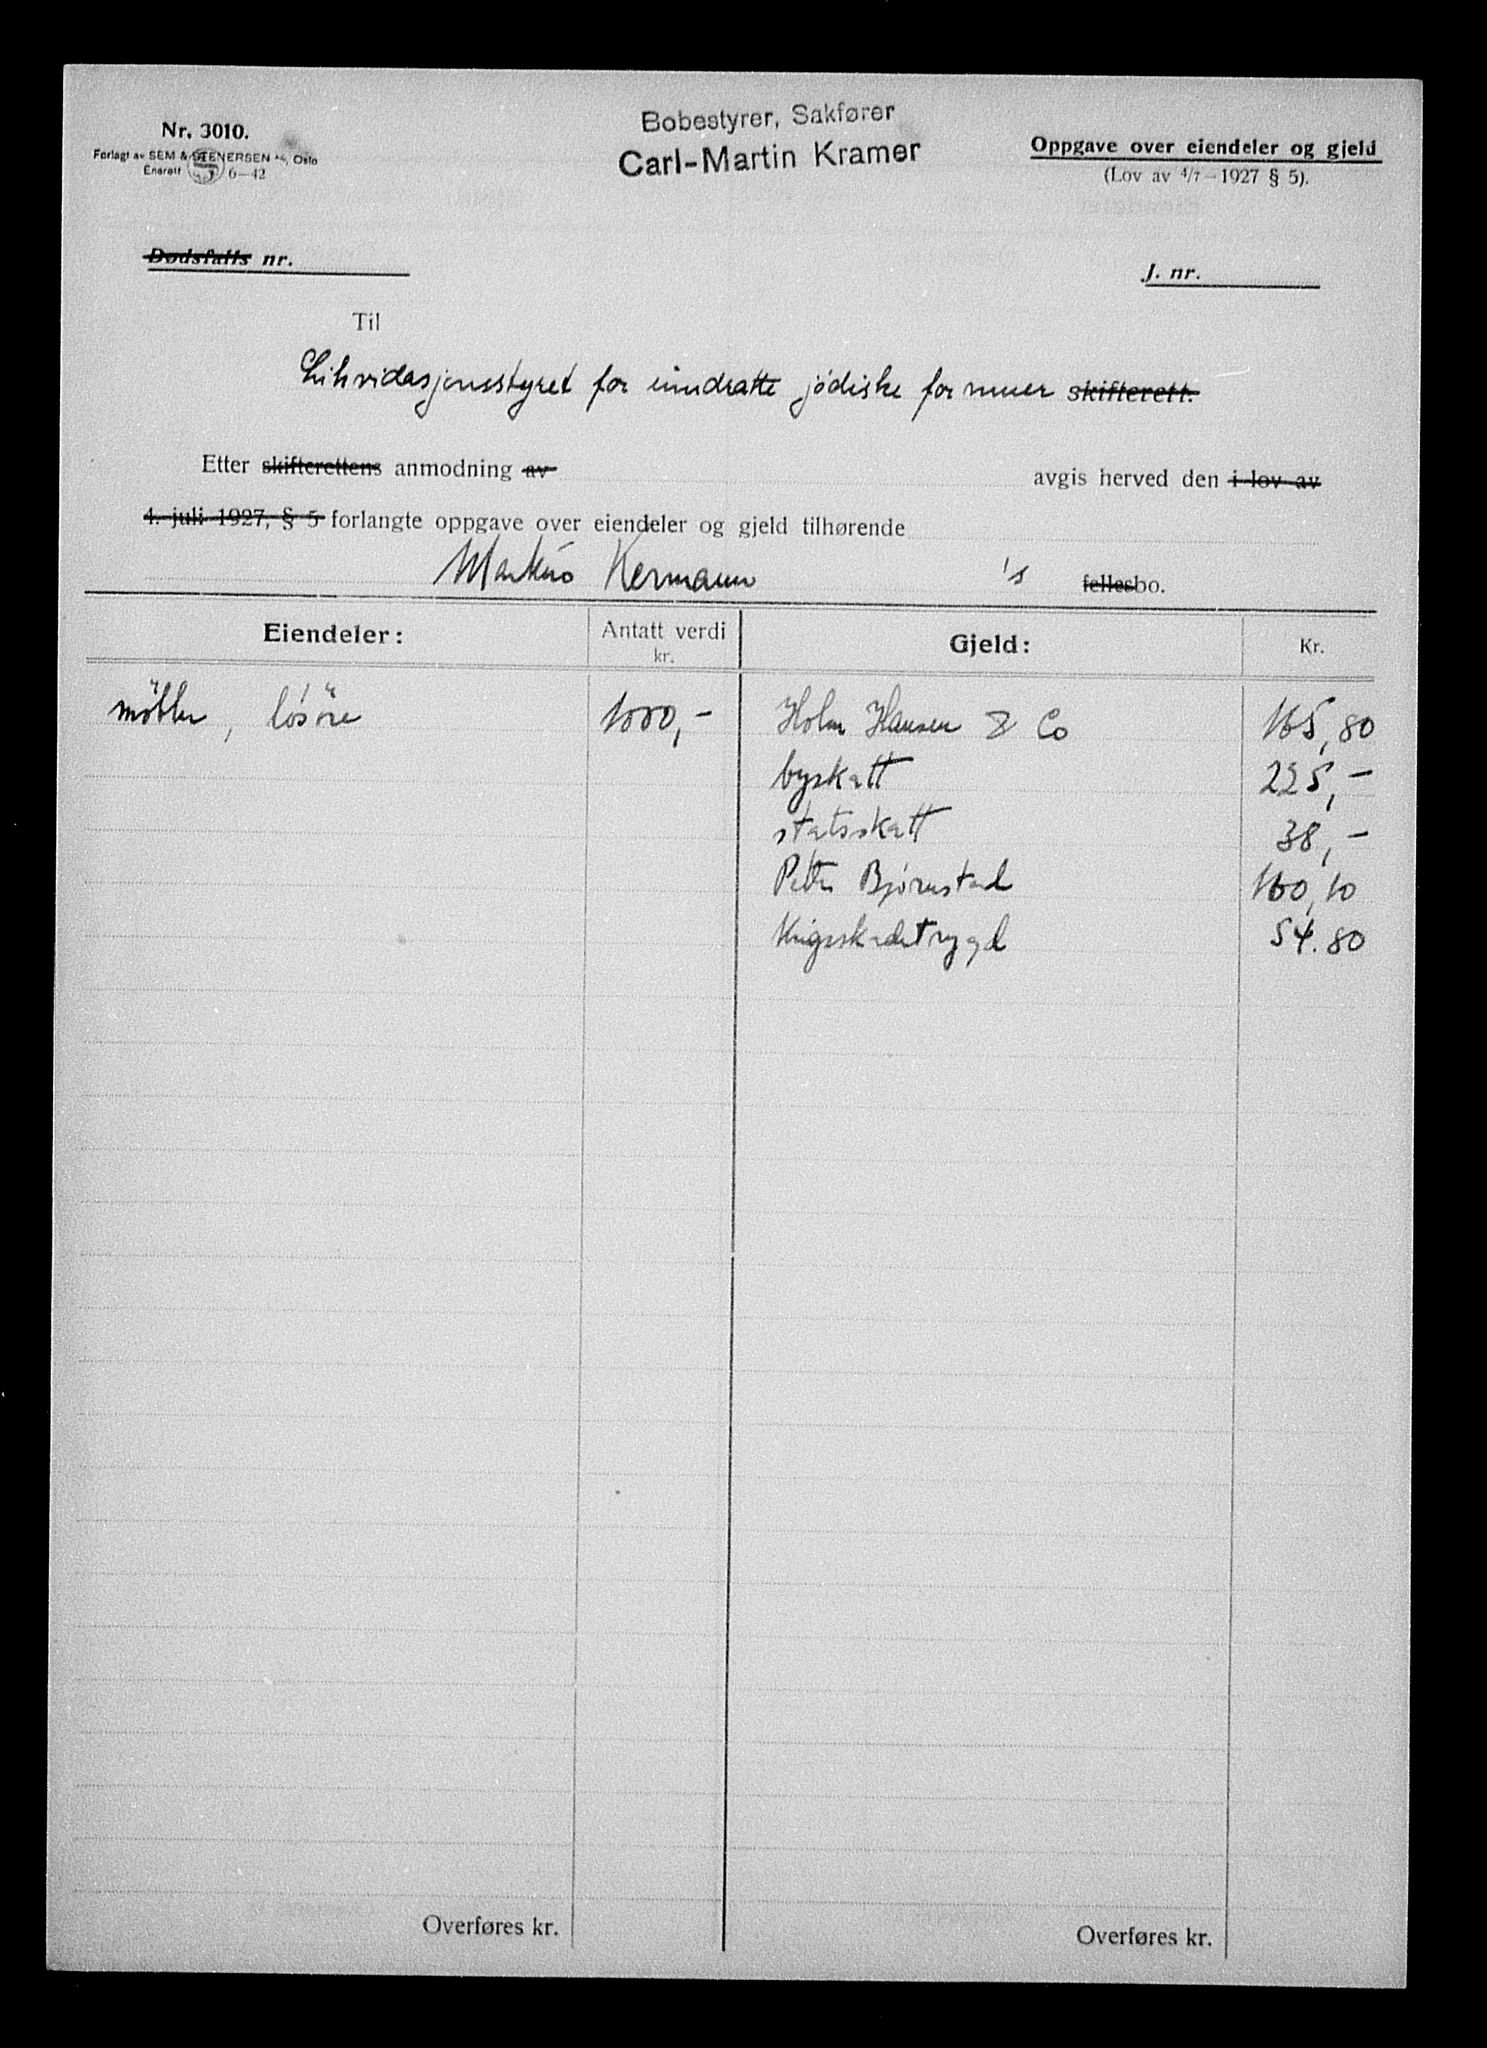 Nr. 3010.
Forlagt av SEM & STENERSEN A/S, Oslo
Enerett 5 6—42
Bobestyrer, Sakfører
Carl-Martin Kramer
Oppgave over eiendeler og gjeld
(Lov av 4/7—1927 § 5).
Dødsfalls nr.
J. nr.
Til
Likvidasjonsstyret for inndratte jødiske formuer skifterett.
Etter skifterettens anmodning av avgis herved den i lov av
4. juli 1927, § 5 forlangte oppgave over eiendeler og gjeld tilhørende
Markus Kermann 's fellesbo.
Eiendeler: Antatt verdi kr. Gjeld: Kr.
möbler, lösöre 1000,- Holm Hansen & Co 165,80
byskatt 225,-
statsskatt 38,-
Petter Bjørnstad 160,10
Krigsskadetrygd 54.80
Overføres kr. Overføres kr.